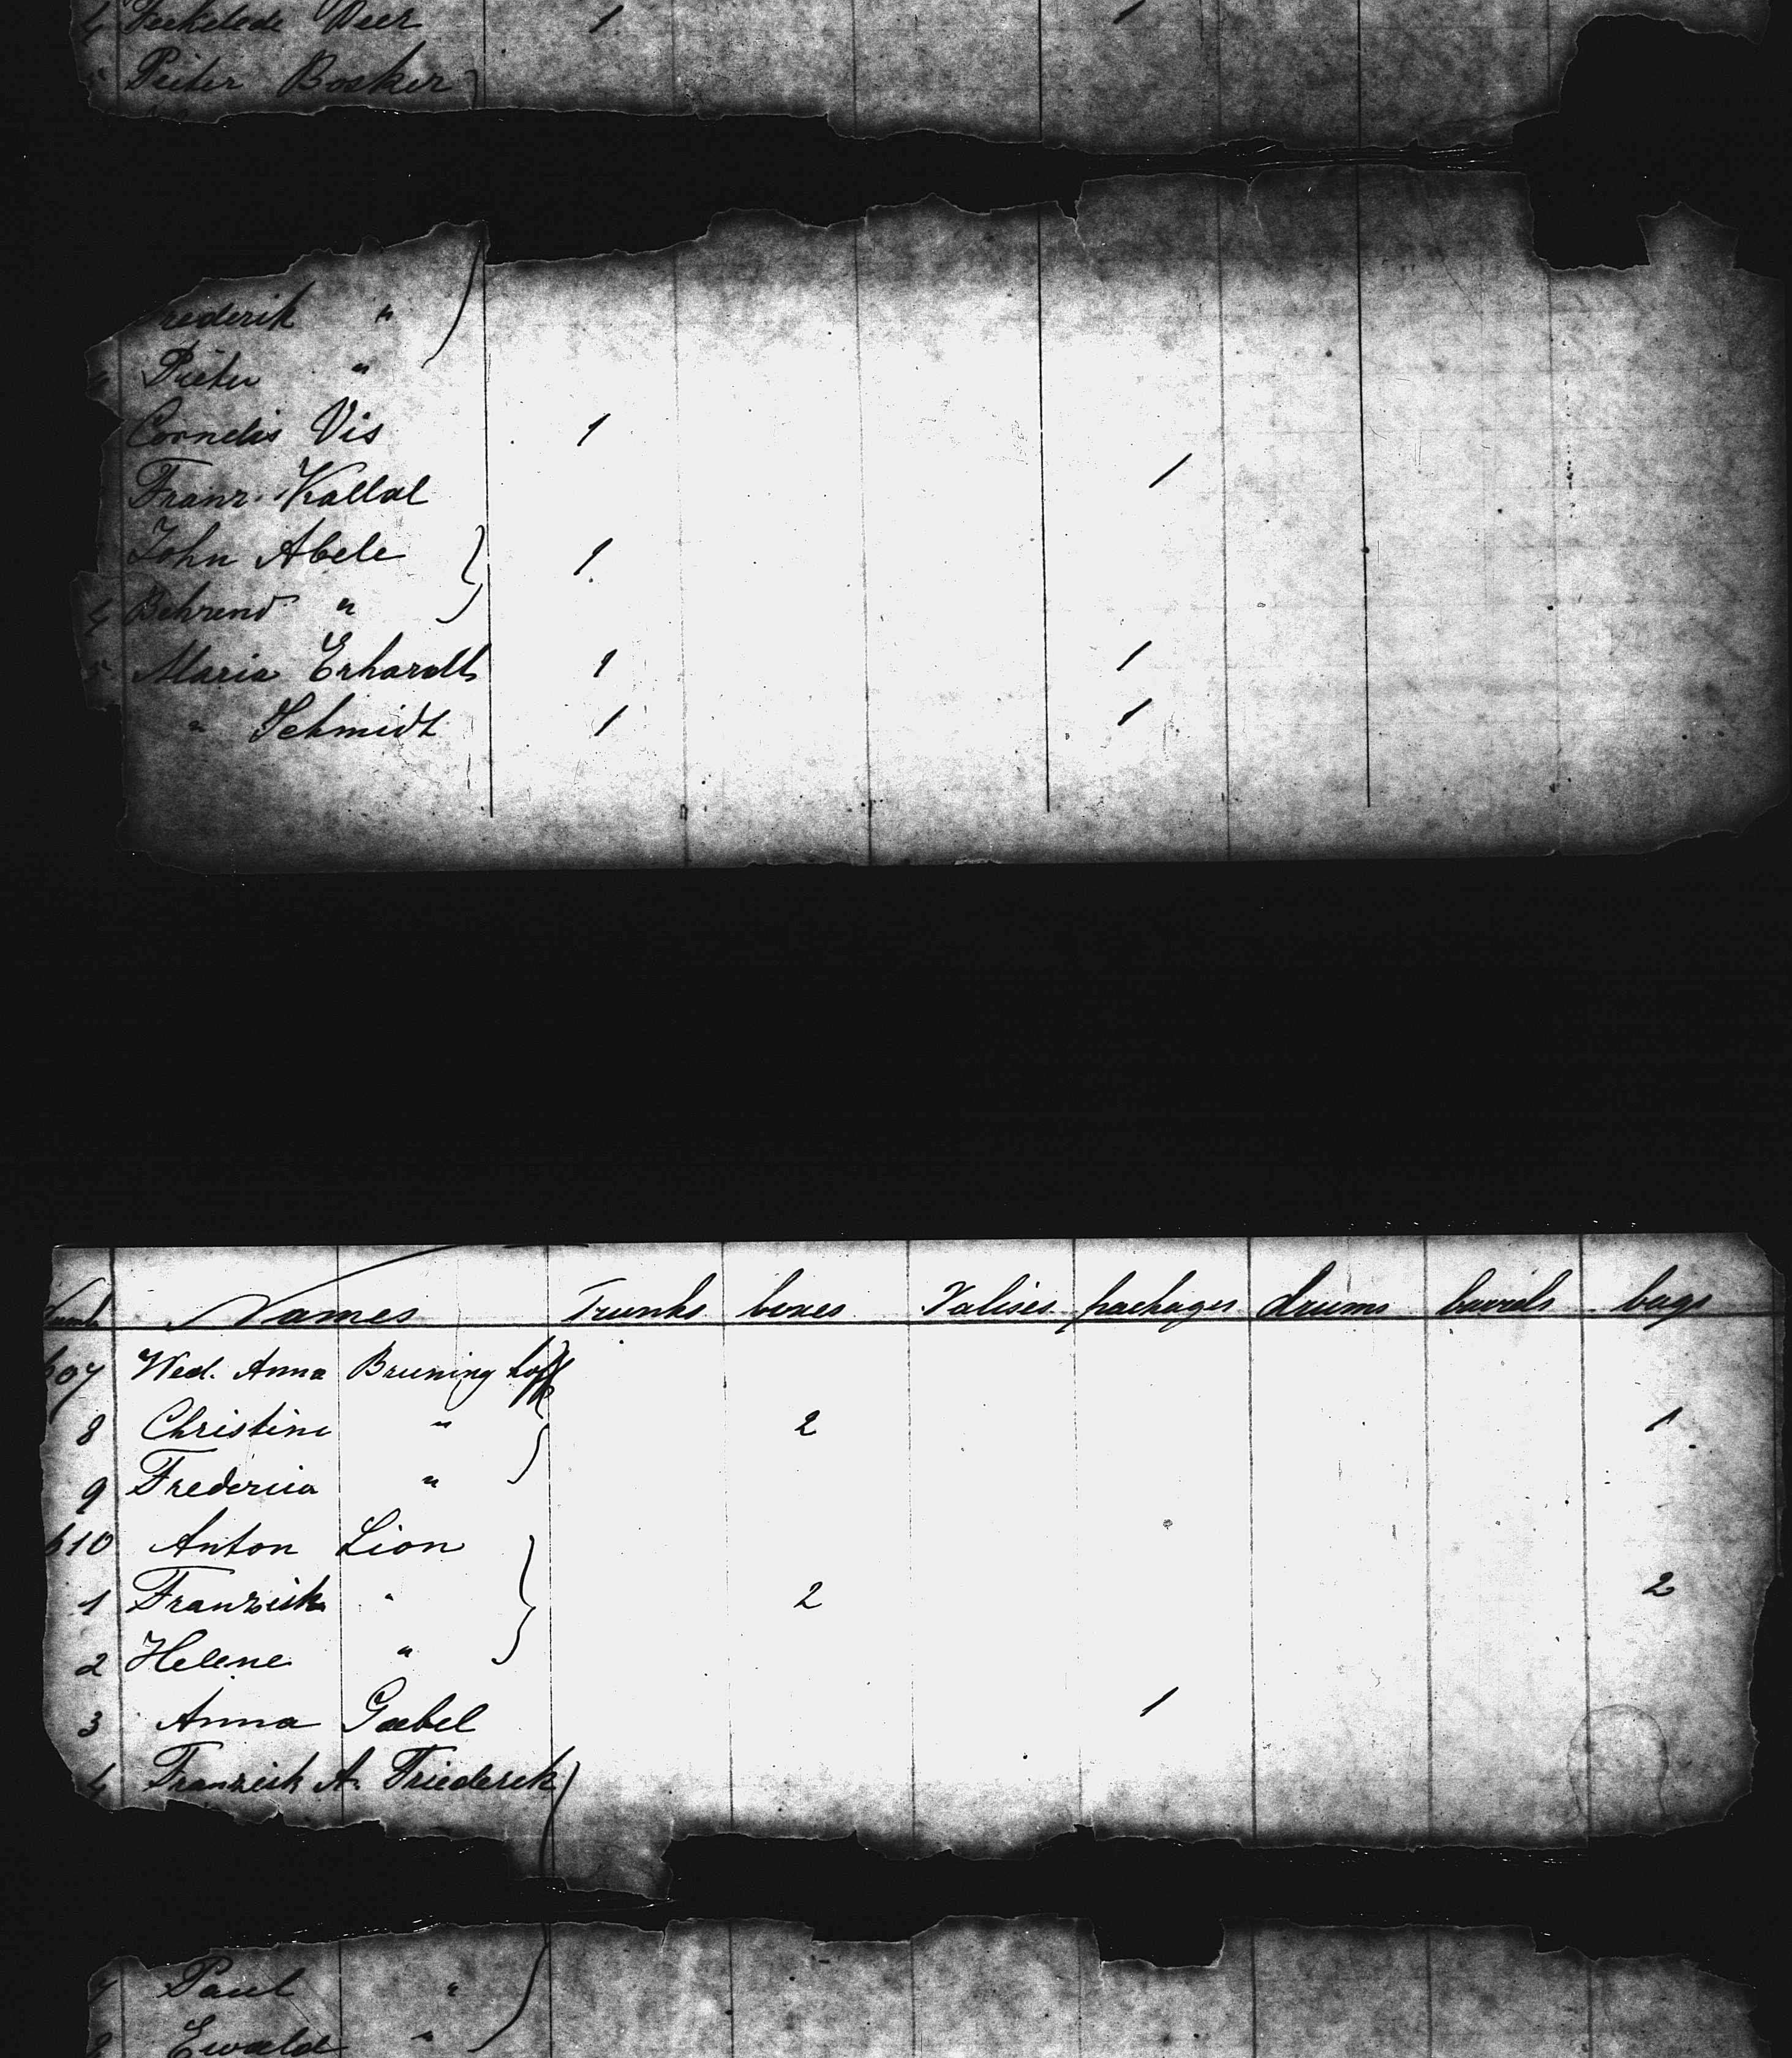 4 Deer 1 1
5 Pieter Bosker
rederik "
Pieter "
Cornelis Vis 1
Franz Kallal 1
John Abele 1
4 Behrend "
5 Maria Erhardt 1 1
" Schmidt 1 1
Names Trunks boxes Valises packages drums barrels bags
607 Wed. Anna Bruninghoff
8 Christine " 2 1
9 Frederica "
610 Anton Lion
1 Franzisk " 2 2
2 Helene "
3 Anna Gaebel 1
4 Franzisk A. Friederik
7 Paul "
8 Ewald "